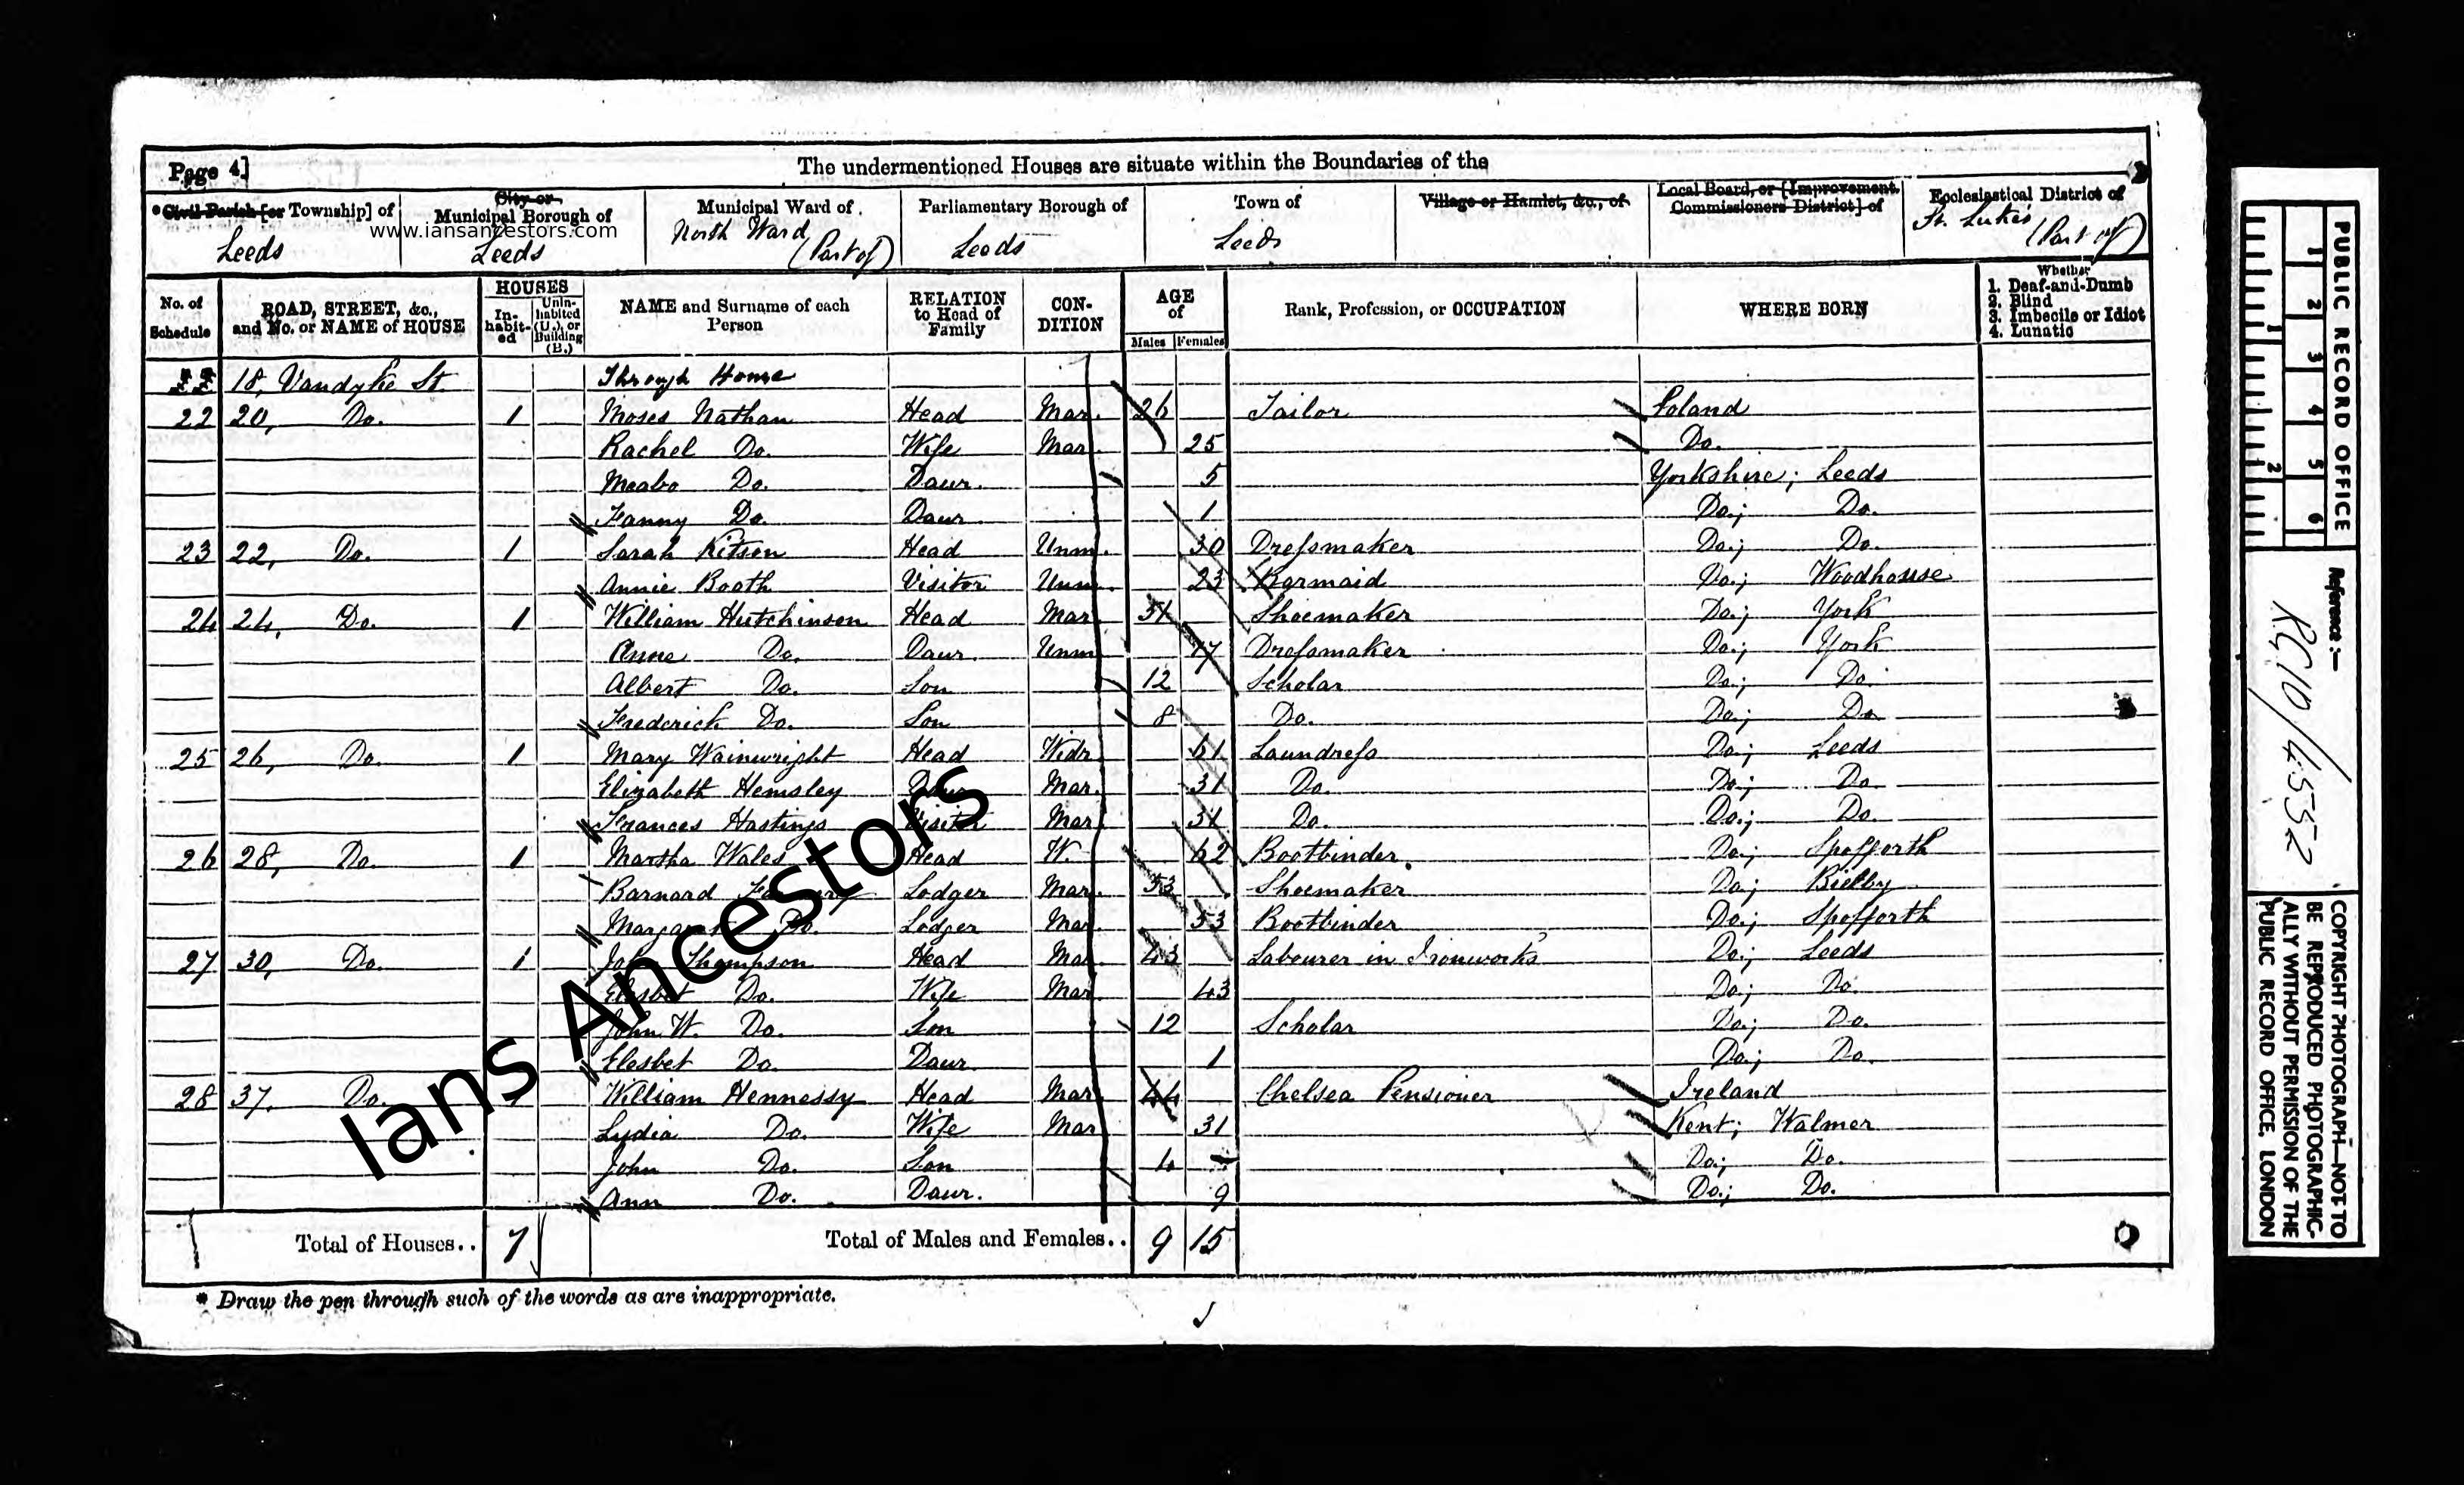 Page 4]
The undermentioned Houses are situate within the Boundaries of the
*Civil Parish [or Township] of
Leeds
City or
Municipal Borough of
Leeds
www.iansancestors.com
Municipal Ward of
North Ward
(Part of)
Parliamentary Borough of
Leeds
Town of
Leeds
Village or Hamlet, &c., of
Local Board, or [Improvement
Commissioners District] of
Ecclesiastical District of
St. Lukes
(Part of)
No. of Schedule
ROAD, STREET, &c., and No. or NAME of HOUSE
HOUSES
In-habit-ed
Unin-habited (U.), or Building (B.)
NAME and Surname of each Person
RELATION to Head of Family
CON-DITION
AGE of
Males Females
Rank, Profession, or OCCUPATION
WHERE BORN
Whether
1. Deaf-and-Dumb
2. Blind
3. Imbecile or Idiot
4. Lunatic
18, Vandyke St Through House
22 20, Do. 1 Moses Nathan Head Mar. 26 Tailor Poland
Rachel Do. Wife Mar. 25 Do.
Meabo Do. Daur. 5 Yorkshire; Leeds
Fanny Do. Daur. 1 Do.; Do.
23 22, Do. 1 Sarah Kitson Head Unm. 30 Dressmaker Do.; Do.
Annie Booth Visitor Unm. 23 Barmaid Do.; Woodhouse
24 24, Do. 1 William Hutchinson Head Mar. 51 Shoemaker Do.; York
Anne Do. Daur. Unm 17 Dressmaker Do.; York
Albert Do. Son 12 Scholar Do.; Do.
Frederick Do. Son 8 Do. Do.; Do.
25 26, Do. 1 Mary Wainwright Head Widr. 61 Laundress Do.; Leeds
Elizabeth Hemsley Daur Mar. 31 Do. Do.; Do.
Frances Hastings Visitor Mar. 31 Do. Do.; Do.
26 28, Do. 1 Martha Wales Head W. 62 Bootbinder. Do.; Spofforth
Barnard Lodger Mar. 53 Shoemaker Do.; Bielby
Margaret Do. Lodger Mar. 53 Bootbinder Do.; Spofforth
27 30, Do. 1 John Thompson Head Mar. 43 Labourer in Ironworks Do.; Leeds
Elesbet Do. Wife Mar. 43 Do.; Do.
John W. Do. Son 12 Scholar Do.; Do.
Elesbet Do. Daur. 1 Do.; Do.
28 37. Do. 1 William Hennessy Head Mar. 44 Chelsea Pensioner Ireland
Lydia Do. Wife Mar 31 Kent; Walmer
John Do. Son 4 Do.; Do.
Ann Do. Daur. 9 Do.; Do.
Total of Houses.. 7
Total of Males and Females.. 9 15
* Draw the pen through such of the words as are inappropriate.
Ians Ancestors
PUBLIC RECORD OFFICE
1 2 3 4 5 6
1 2
Reference :-
RG10/4552
COPYRIGHT PHOTOGRAPH—NOT TO
BE REPRODUCED PHOTOGRAPHIC-
ALLY WITHOUT PERMISSION OF THE
PUBLIC RECORD OFFICE, LONDON